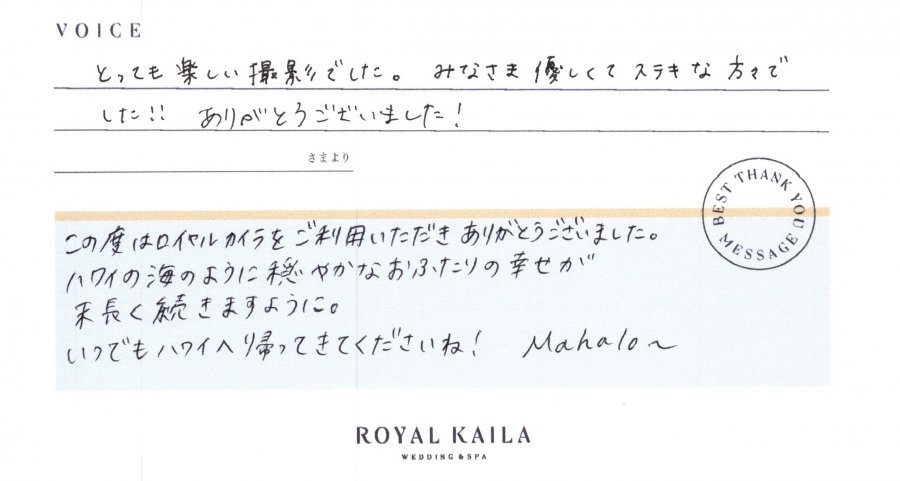 VOICE
とっても楽しい撮影でした。 みなさま優しくてステキな方々で
した!! ありがとうございました!
さまより
BEST THANK YOU MESSAGE
この度はロイヤルカイラをご利用いただきありがとうございました。
ハワイの海のように穏やかなおふたりの幸せが
末長く続きますように。
いつでもハワイへり帰ってきてくださいね! Mahalo~
ROYAL KAILA
WEDDING & SPA